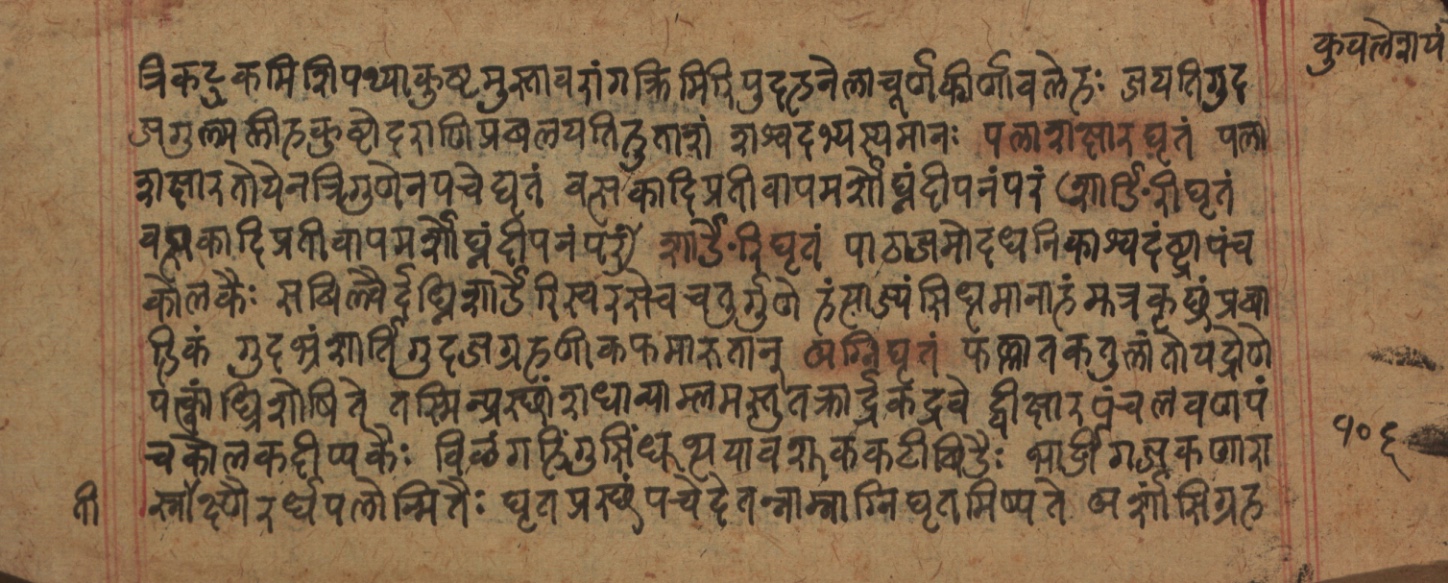 कुवलेशयं
त्रिकटुकमिशिपथ्याकुष्टमुस्तावरांगक्रिमिरिपुदहनेलाचूर्णकीर्णावलेहः जयतिगुद
जगुल्मप्लीहकुष्टोदराणिप्रबलयतिहुताशं शश्वदभ्यस्यमानः पलाशक्षारघृतं पला
शक्षारतोयेनत्रिगुणेनपचेघृतं वत्सकादिप्रतीवापमर्शोघ्नंदीपनंपरं शार्ङेरीघृतं
वत्सकादिप्रतीवापमर्शोघ्नंदीपनंपरं शार्ङेरिघृतं पाठाजमोदधनिकाश्वदंष्ट्रापंच
कोलकैः सबिल्वैर्दध्निशार्ङेरिस्वरसेचचतुर्गुणे हंत्याज्यंसिद्धमानाहंमूत्रकृछ्रंप्रवा
हिकं गुदभ्रंशार्तिगुदजग्रहणीकफमारुतान् अग्निघृतं फल्लातकतुलांतोयद्रोणे
पक्त्वांघ्रिशोषिते तस्मिन्प्रस्थांशधान्याम्लमस्तुतक्रार्द्रकद्रवे द्वीक्षारपंचलवणपं
चकोलकदीप्यकैः विळंगहिंगुसिंधूत्थयावशूककटीबिडैः भार्ङीगजकणारा
ती
स्नौक्ष्णैरर्धपलोन्मितैः घृतप्रस्थंपचेदेतन्नाम्नाग्निघृतमिष्यते अर्शांसिग्रह
१०६